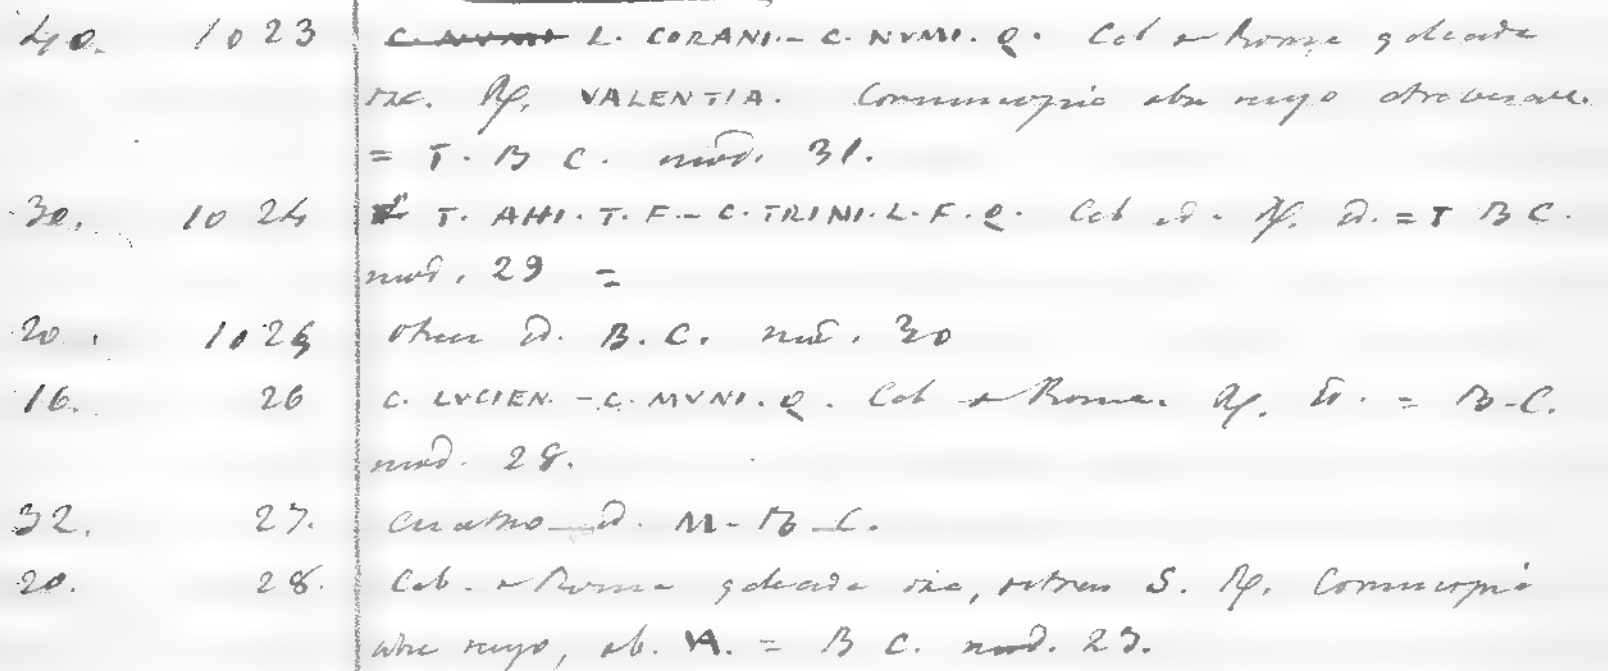 40. 1023 C. NUMI L. CORANI.- C. NVMI. Q. Cab de Roma galeada
der. Rf. VALENTIA. Cornucopia sobre rayo atravesado.
= T. B C. mod. 31.
30. 1024 T. AHI. T. F. - C. TRINI. L. F. Q. Cab id. Rf. id. = T B C.
mod. 29 =
20. 1025 otra id. B. C. mod. 30
16. 26 C. LVCIEN. - C. MVNI. Q. Cab de Roma. Rf. id. = B-C.
mod. 28.
32. 27. Cuatro id. M - B - C.
20. 28. Cab. de Roma galeada der, detras S. Rf. Cornucopia
sobre rayo, VA. = B C. mod. 23.